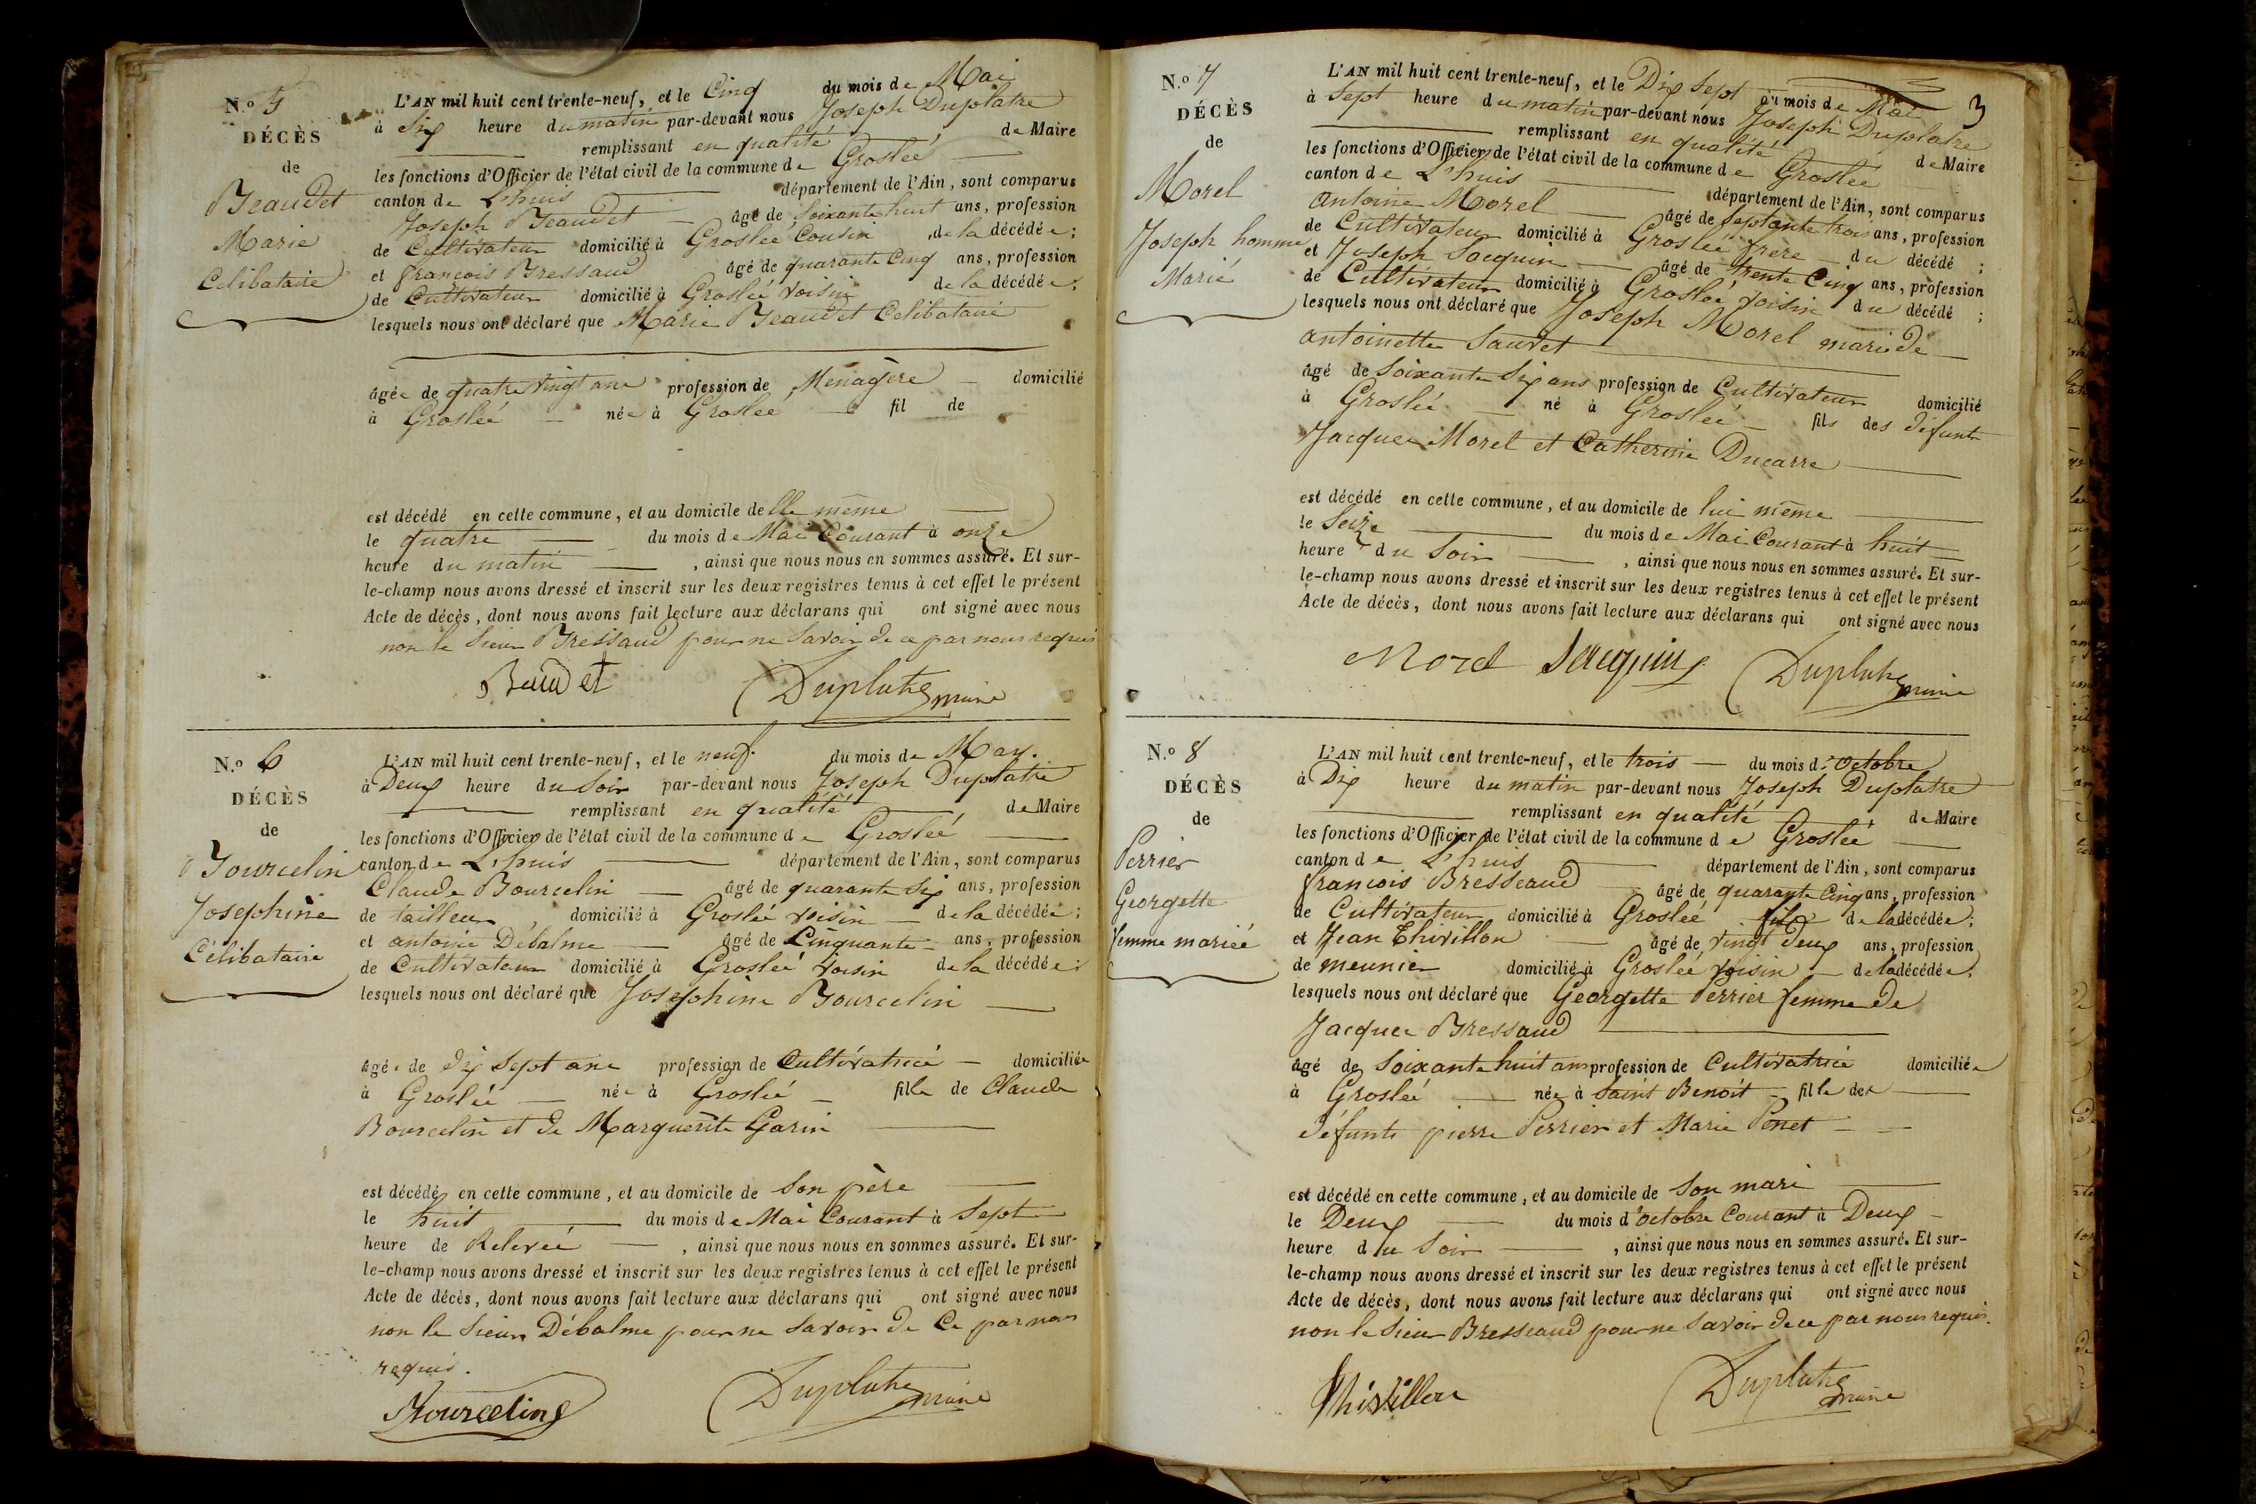 N.o 5
DÉCÈS
de
Beaudet
Marie
Celibataire
L'AN mil huit cent trente-neuf, et le Cinq du mois de Mai
à Six heure du matin par-devant nous Joseph Duplatre
remplissant en qualité de Maire
les fonctions d'Officier de l'état civil de la commune de Groslée
canton de L'huis département de l'Ain, sont comparus
Joseph Beaudet âgé de Soixante huit ans, profession
de Cultivateur domicilié à Groslée Cousin de la décédée ;
et françois Bressaud âgé de quarante Cinq ans, profession
de Cultivateur domicilié à Groslée voisin de la décédée ;
lesquels nous ont déclaré que Marie Beaudet Celibataire
âgée de quatre vingt ans profession de Menagère domicilié
à Groslée née à Groslée fil de
est décédé en cette commune, et au domicile de elle même
le quatre du mois de Mai Courant à onze
heure du matin , ainsi que nous nous en sommes assuré. Et sur-
le-champ nous avons dressé et inscrit sur les deux registres tenus à cet effet le présent
Acte de décès, dont nous avons fait lecture aux déclarans qui ont signé avec nous
non le Sieur Bressaud pour ne Savoir de ce par nous requis
Beaudet Duplatre maire
N.o 6
DÉCÈS
de
Bourcelin
Josephine
Célibataire
L'AN mil huit cent trente-neuf, et le neuf du mois de May.
à Deux heure du Soir par-devant nous Joseph Duplatre
remplissant en qualité de Maire
les fonctions d'Officier de l'état civil de la commune de Groslée
canton de L'huis département de l'Ain, sont comparus
Claude Bourcelin âgé de quarante Six ans, profession
de tailleur, domicilié à Groslée voisin de la décédée ;
et antoine Débalme âgé de Cinquante ans, profession
de Cultivateur domicilié à Groslée voisin de la décédée ;
lesquels nous ont déclaré que Josephine Bourcelin
âgée de dix Sept ans profession de Cultivatrice domiciliée
à Groslée née à Groslée fille de Claude
Bourcelin et de Marguerite Garin
est décédé en cette commune, et au domicile de Son père
le huit du mois de Mai Courant à Sept
heure de Relevée , ainsi que nous nous en sommes assuré. Et sur-
le-champ nous avons dressé et inscrit sur les deux registres tenus à cet effet le présent
Acte de décès, dont nous avons fait lecture aux déclarans qui ont signé avec nous
non le Sieur Débalme pour ne Savoir de Ce par nous
requis.
Bourceling Duplatre maire
3
N.o 7
DÉCÈS
de
Morel
Joseph homme
Marié
L'AN mil huit cent trente-neuf, et le Dix Sept du mois de Mai
à Sept heure du matin par-devant nous Joseph Duplatre
remplissant en qualité de Maire
les fonctions d'Officier de l'état civil de la commune de Groslée
canton de L'huis département de l'Ain, sont comparus
Antoine Morel âgé de Septante trois ans, profession
de Cultivateur domicilié à Groslée frère du décédé ;
et Joseph Sacquin âgé de trente Cinq ans, profession
de Cultivateur domicilié à Groslée voisin du décédé ;
lesquels nous ont déclaré que Joseph Morel marié de
antoinette Sauvet
âgé de Soixante Six ans profession de Cultivateur domicilié
à Groslée né à Groslée fils des défunts
Jacques Morel et Catherine Ducarre
est décédé en cette commune, et au domicile de lui même
le Seize du mois de Mai Courant à huit
heure du Soir , ainsi que nous nous en sommes assuré. Et sur-
le-champ nous avons dressé et inscrit sur les deux registres tenus à cet effet le présent
Acte de décès, dont nous avons fait lecture aux déclarans qui ont signé avec nous
Morel Sacquin Duplatre maire
N.o 8
DÉCÈS
de
Perrier
Georgette
femme mariée
L'AN mil huit cent trente-neuf, et le trois du mois d'Octobre
à Dix heure du matin par-devant nous Joseph Duplatre
remplissant en qualité de Maire
les fonctions d'Officier de l'état civil de la commune de Groslée
canton de L'huis département de l'Ain, sont comparus
françois Bresseaud âgé de quarante Cinq ans, profession
de Cultivateur domicilié à Groslée fils de la décédée ;
et Jean Thivillon âgé de vingt deux ans, profession
de meunier domicilié à Groslée voisin de la décédée ;
lesquels nous ont déclaré que Georgette Perrier femme de
Jacques Bressaud
âgé de Soixante huit ans profession de Cultivatrice domiciliée
à Groslée née à Saint Benoit fille des
défunts pierre Perrier et Marie Ponet
est décédé en cette commune, et au domicile de Son mari
le Deux du mois d'octobre Courant à Deux
heure du Soir , ainsi que nous nous en sommes assuré. Et sur-
le-champ nous avons dressé et inscrit sur les deux registres tenus à cet effet le présent
Acte de décès, dont nous avons fait lecture aux déclarans qui ont signé avec nous
non le Sieur Bresseaud pour ne Savoir de ce par nous requis.
Thivillon Duplatre maire